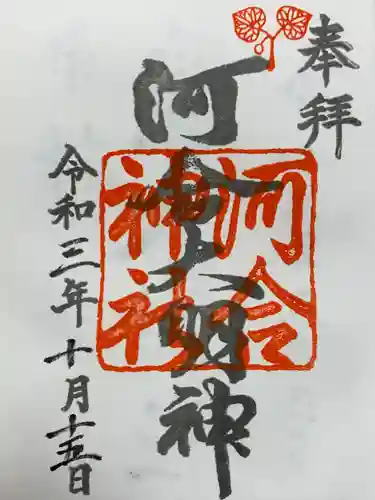 奉拝
河合大明神
河合
神社
令和三年十月十五日